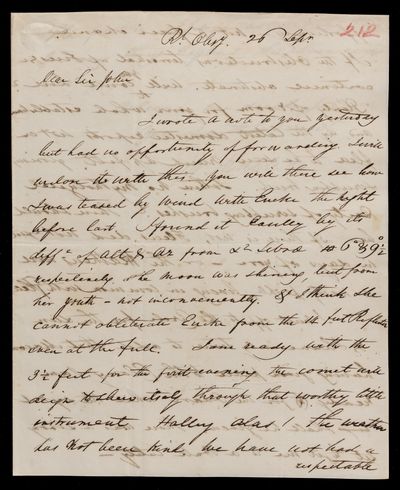 212
Rl. Obsy. 26 Sepr.
Dear Sir John
I wrote a note to you yesterday
but had no opportunity of forwarding I will
inclose it with this. You will there see how
I was teased by Wind with Encke the night
before last I found it Easily by its
diffce of Alt & Az from α2 Libræ 6° & 9°½
respectively. The moon was shining, but from
her youth - not inconveniently. & I think she
cannot obliterate Encke from the 14 feet Reflector
even at the full. I am ready with the
3½ feet for the first evening the comet will
deign to shew itself through that worthy little
instrument Halley alas! The weather
has not been kind we have not had a
respectable